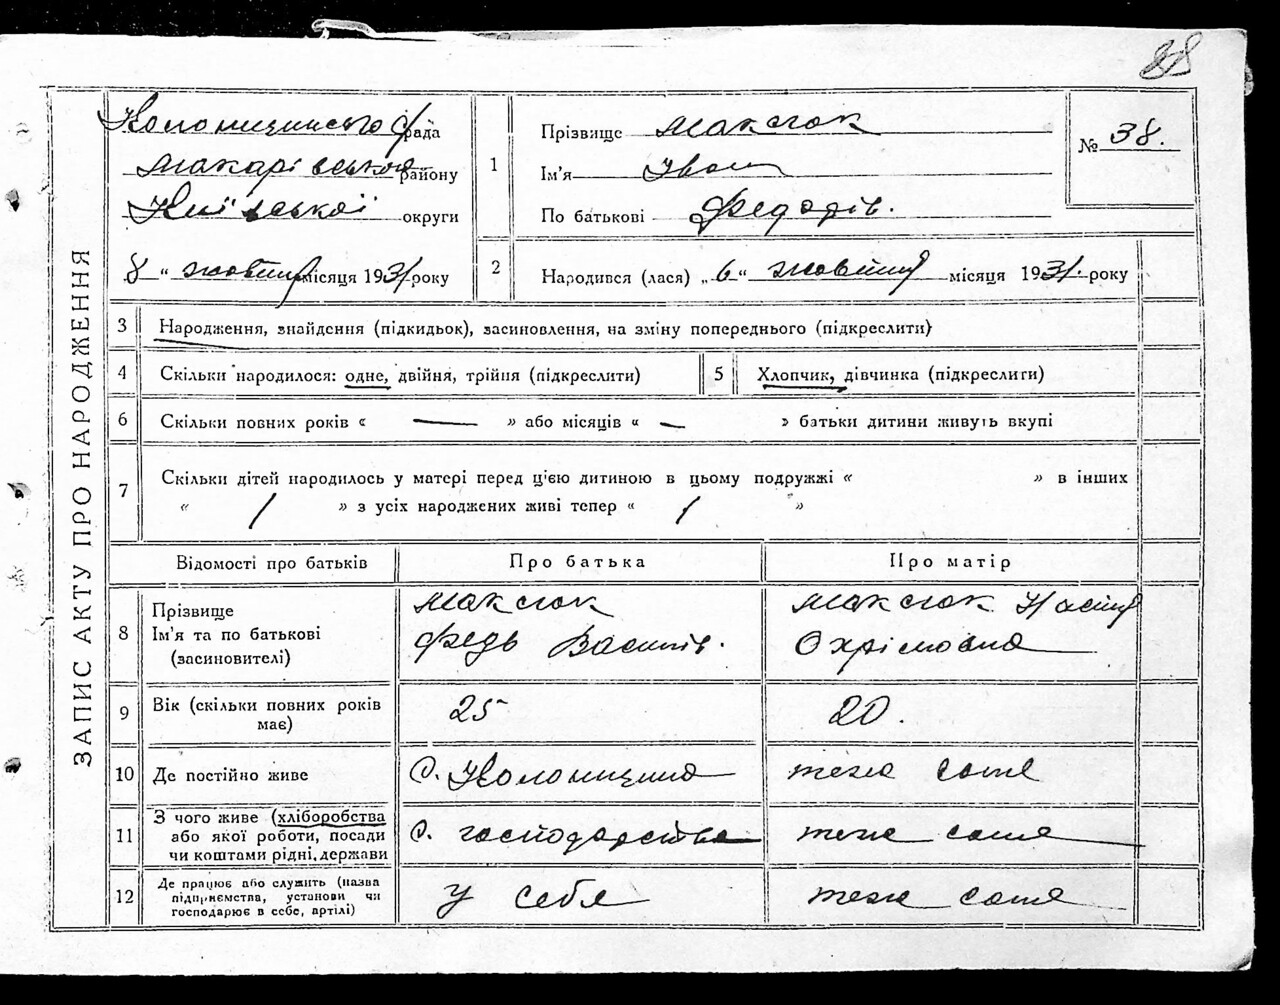 38
ЗАПИС АКТУ ПРО НАРОДЖЕННЯ
Колонщинського рада
Макарівського району
Київської округи
8 " жовтня місяця 1931 року
1
Прізвище Максюк
Ім'я Іван
По батькові Федорів.
№ 38.
2 Народився (лася) „ 6 " жовтня місяця 1931 року
3 Народження, знайдення (підкидьок), засиновлення, на зміну попереднього (підкреслити)
4 Скільки народилося: одне, двійня, трійня (підкреслити)
5 Хлопчик, дівчинка (підкреслити)
6 Скільки повних років « — » або місяців « — » батьки дитини живуть вкупі
7 Скільки дітей народилось у матері перед ц'єю дитиною в цьому подружжі « » в інших
« / » з усіх народжених живі тепер « / »
Відомості про батьків Про батька Про матір
8
Прізвище
Ім'я та по батькові
(засиновителі)
Максюк
Федь Василів.
Максюк Настя
Охрімовна
9 Вік (скільки повних років
має)
25
20.
10 Де постійно живе
с. Колонщина
теж саме
11
З чого живе (хліборобства
або якої роботи, посади
чи коштами рідні, держави
с. господарства
теж саме
12
Де працює або служить (назва
підприємства, установи чи
господарює в себе, артілі)
у себе
теж саме